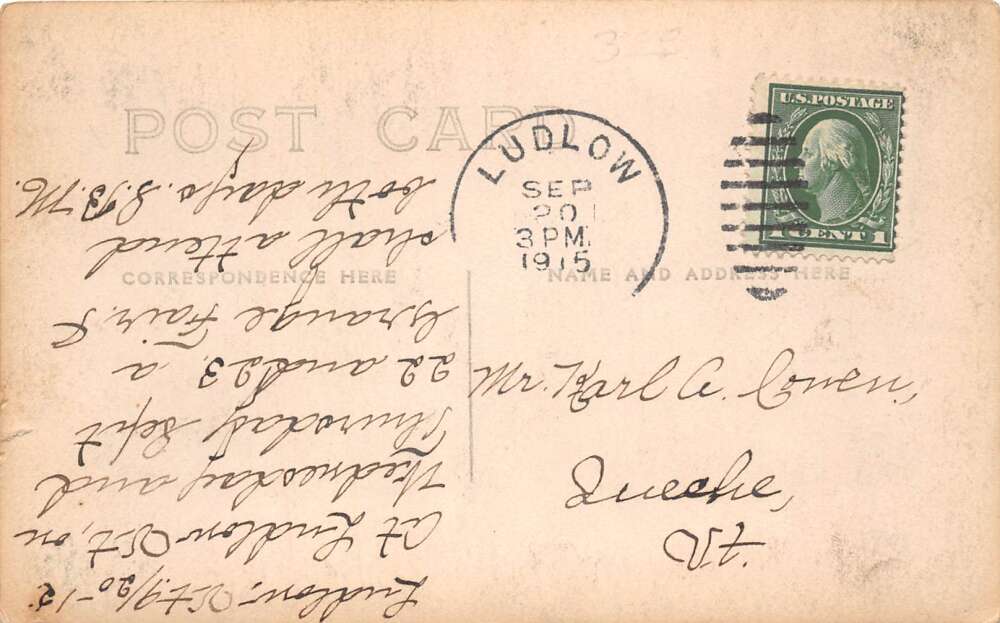 POST CARD
CORRESPONDENCE HERE
NAME AND ADDRESS HERE
LUDLOW
SEP
20
3 PM
1915
U.S.POSTAGE
1 CENT 1
Mr. Karl A.
Queche,
Vt
Ludlow, Vt 9/20-15
At Ludlow Vt, on
Wednesday and
Thursday Sept
22 and 23, a
Grange Fair. I
shall attend
both days. S.B.M.